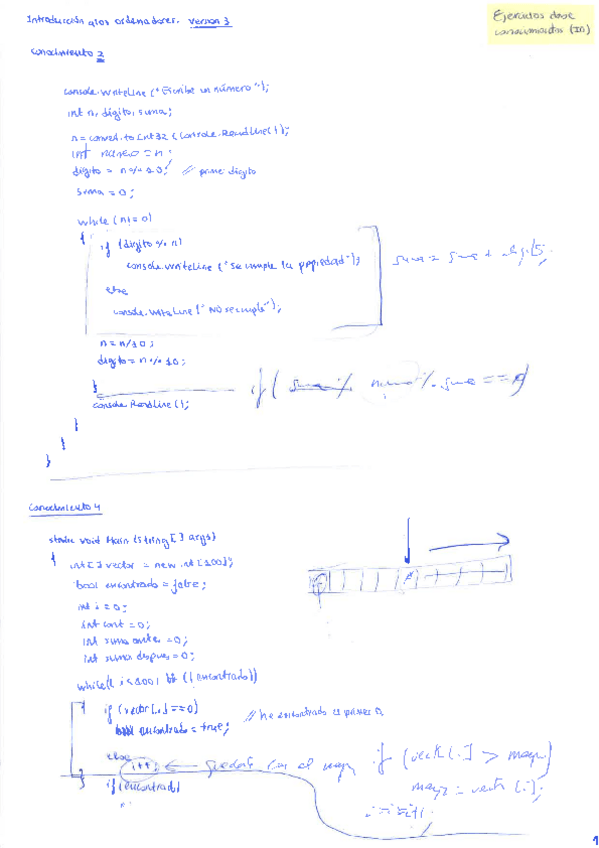 Introducción a los ordenadores. Version 3
Ejercicios clase
conocimientos (IO)
Conocimiento 2
console.WriteLine ("Escribe un número");
int n, digito, suma;
n = convert.to Int32 (Console.ReadLine());
int numero = n;
digito = n % 10; // primer digito
suma = 0;
while (n != 0)
{
if (digito % n)
console.WriteLine ("Se cumple la propiedad");
else
console.WriteLine ("NO se cumple");
suma = suma + digito;
n = n/10;
digito = n % 10;
}
if ( numero % suma == 0)
console.ReadLine();
}
}
}
Conocimiento 4
static void Main (string [ ] args)
{
int [ ] vector = new int [100];
bool encontrado = false;
int i = 0;
int cont = 0;
int suma antes = 0;
int suma despues = 0;
while (( i < 100) && (! encontrado))
{
if (vector [i] == 0) // he encontrado el primer 0
encontrado = true;
else
i++; ← con el mayor if (vector [i] > mayor)
mayor = vector [i];
} if (encontrado)
1